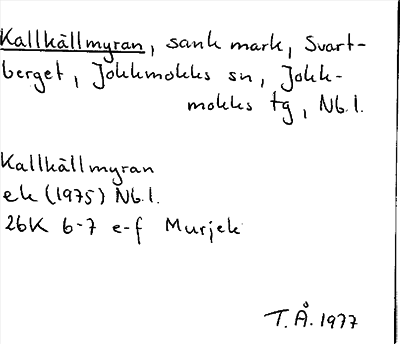 Kallkällmyran, sank mark, Svart-
berget, Jokkmokks sn, Jokk-
mokks tg, Nb.l.
Kallkällmyran
ek (1975) Nb.l.
26K 6-7 e-f Murjek
T.Å. 1977